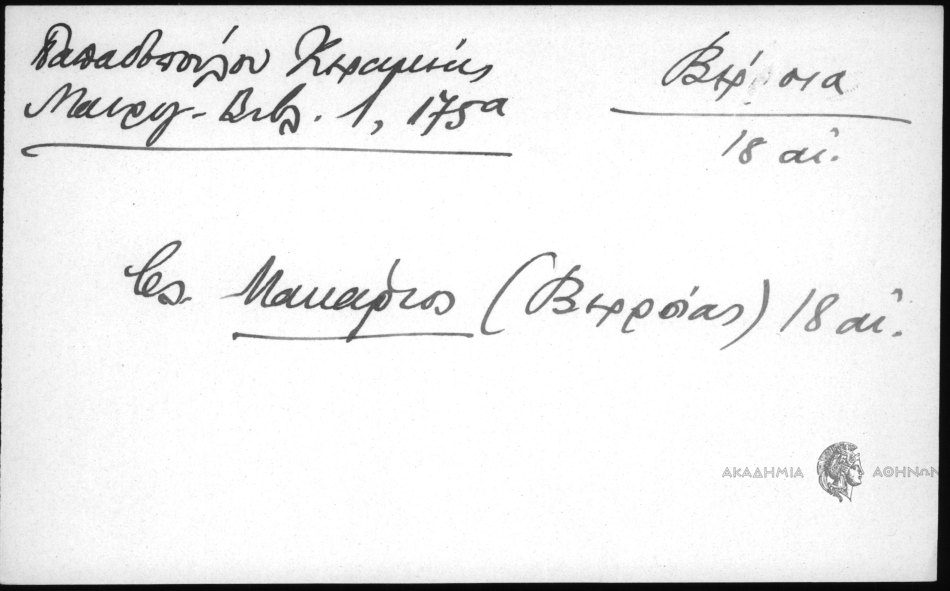 Παπαδοπούλου Κεραμέως
Μαυρογ. Βιβλ. 1, 175α
Βέρροια
18 αἰ.
Βλ. Μακάριος (Βερροίας) 18 αἰ.
ΑΚΑΔΗΜΙΑ ΑΘΗΝΩΝ